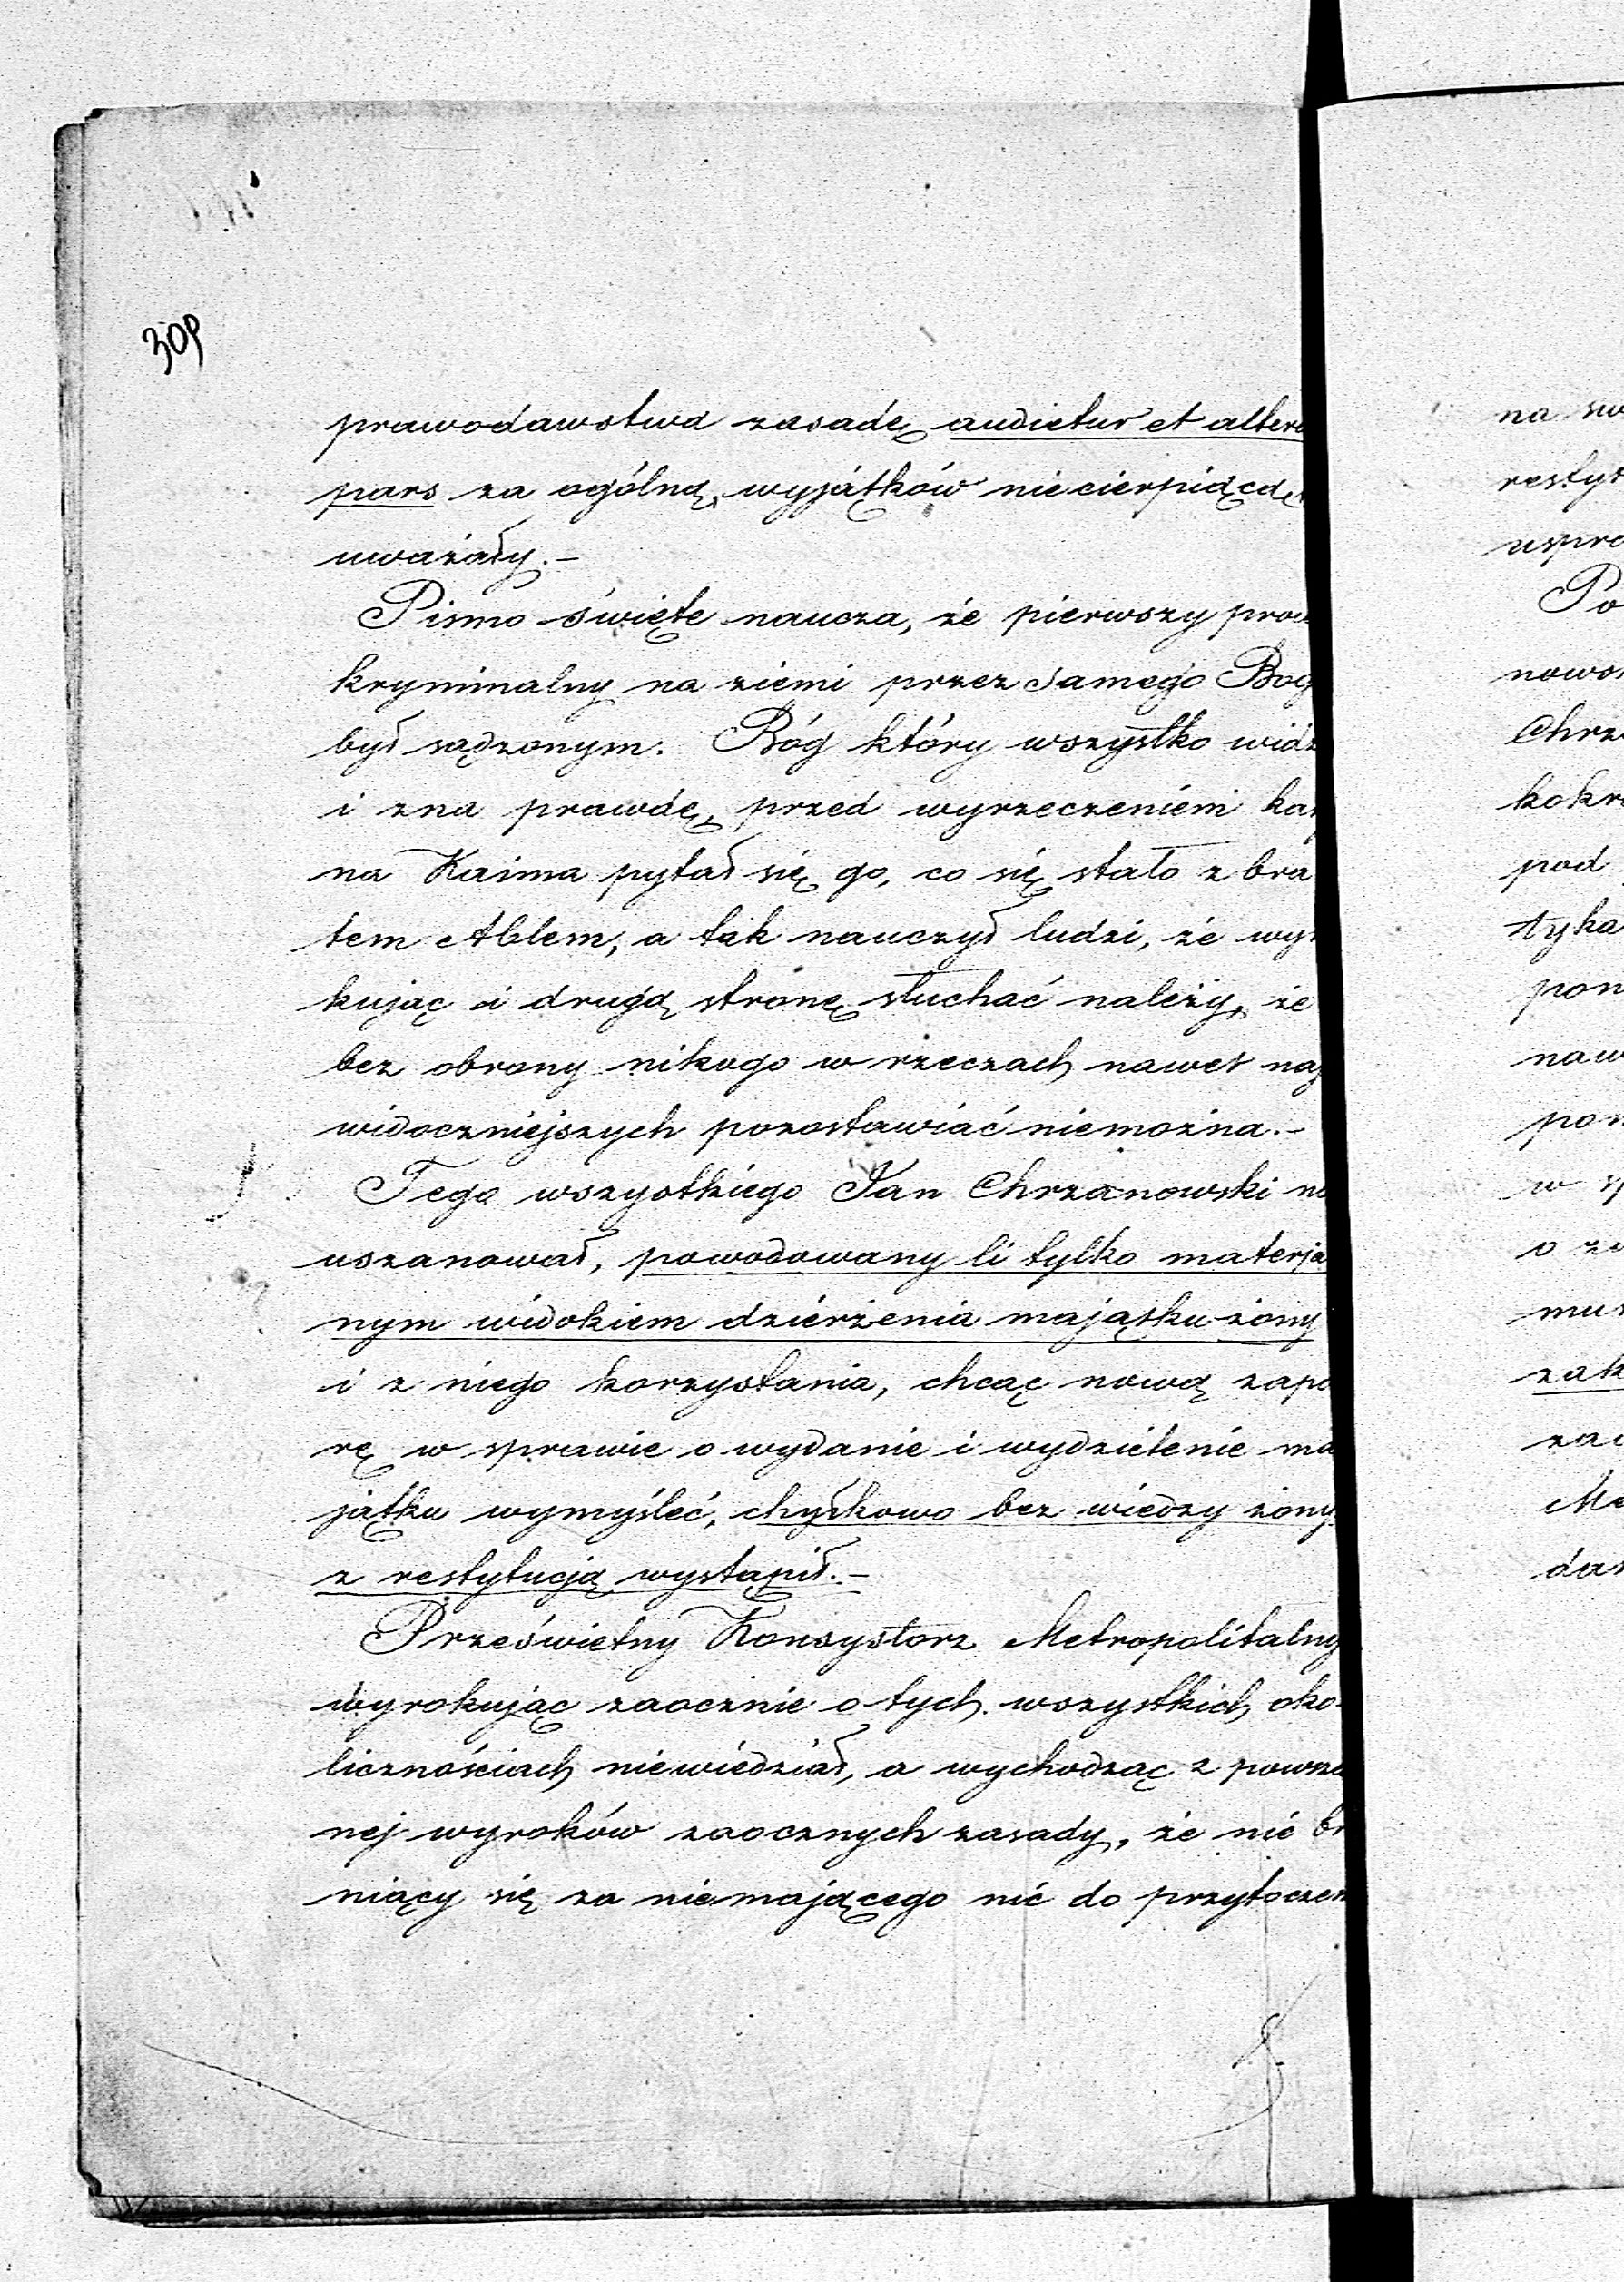 309
prawodawstwa zasadę audietur et altera
pars za ogólną, wyjątków niecierpiącą
uważały.—
Pismo święte naucza, że pierwszy proc
kryminalny na ziemi przez samego Bog
był sądzonym. Bóg który wszystko widz
i zna prawdę, przed wyrzeczeniem kar
na Kaima pytał się go, co się stało z bra
tem Ablem, a tak nauczył ludzi, że wyr
kując i drugą stronę słuchać należy, że
bez obrony nikogo w rzeczach nawet naj
widoczniejszych pozostawiać niemożna.—
Tego wszystkiego Jan Chrzanowski nie
uszanował, powodowany li tylko materja
nym widokiem dzierżenia majątku żony
i z niego korzystania, chcąc nową zapo
rę w sprawie o wydanie i wydzielenie ma
jątku wymyśleć, chyłkowo bez wiedzy żony
z restytucją wystąpił.—
Prześwietny Konsystorz Metropolitalny
wyrokując zaocznie o tych wszystkich oko-
licznościach niewiedział, a wychodząc z powsze
nej wyroków zaocznych zasady, że nie br
niący się za niemającego nic do przytoczen
na sw
resty
uspra
Po
nows
Chrza
kokr
pod
tyka
pon
naw
pon
w sp
o za
mus
zak
zao
Me
das